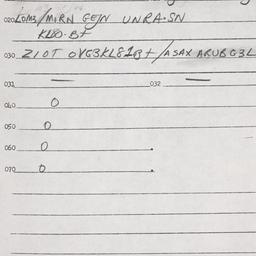 020 LOMZ/MIRN GEJN UNRA·SN
KLOO·Bt
030 ZIOT OVG3KL81Bt/ASAX ARUBG3L
031 — 032 —
040 0
050 0
060 0
070 0